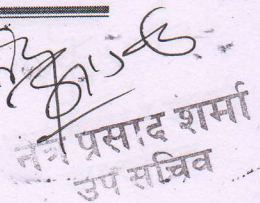 प्रसाद शर्मा
उप सचिव